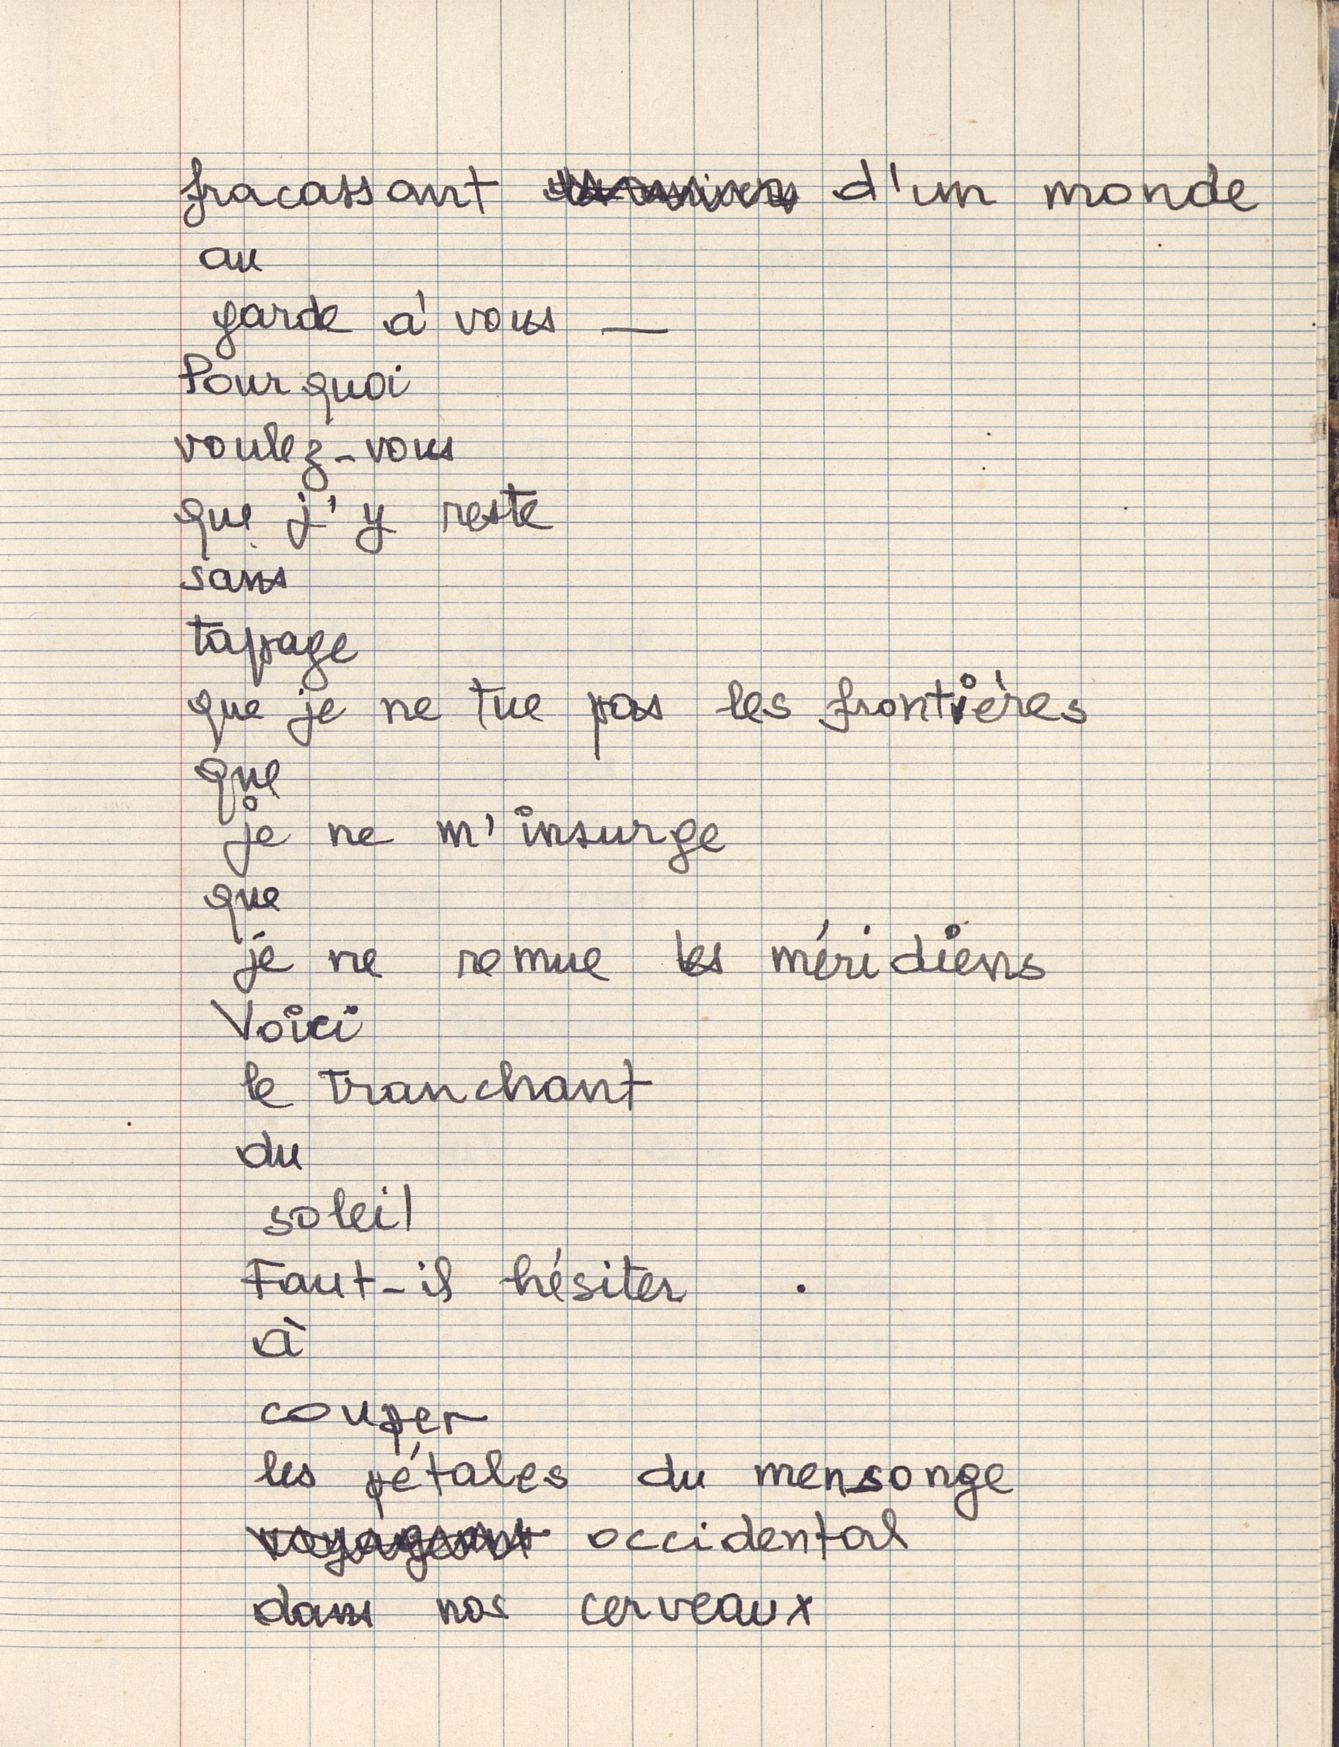 fracassant d'un monde
au
garde à vous —
Pourquoi
voulez-vous
que j'y reste
sans
tapage
que je ne tue pas les frontières
que
je ne m'insurge
que
je ne remue les méridiens
Voici
le tranchant
du
soleil
Faut-il hésiter
à
couper
les pétales du mensonge
voyageant occidental
dans nos cerveaux